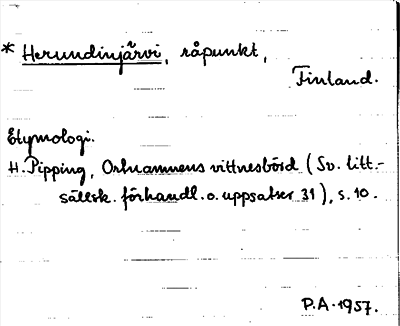 * Herundinjärvi, råpunkt,
Finland.
Etymologi.
H. Pipping, Ortnamnens vittnesbörd (Sv. litt.-
sällsk. förhandl. o. uppsatser 31), s. 10.
P.A. 1957.